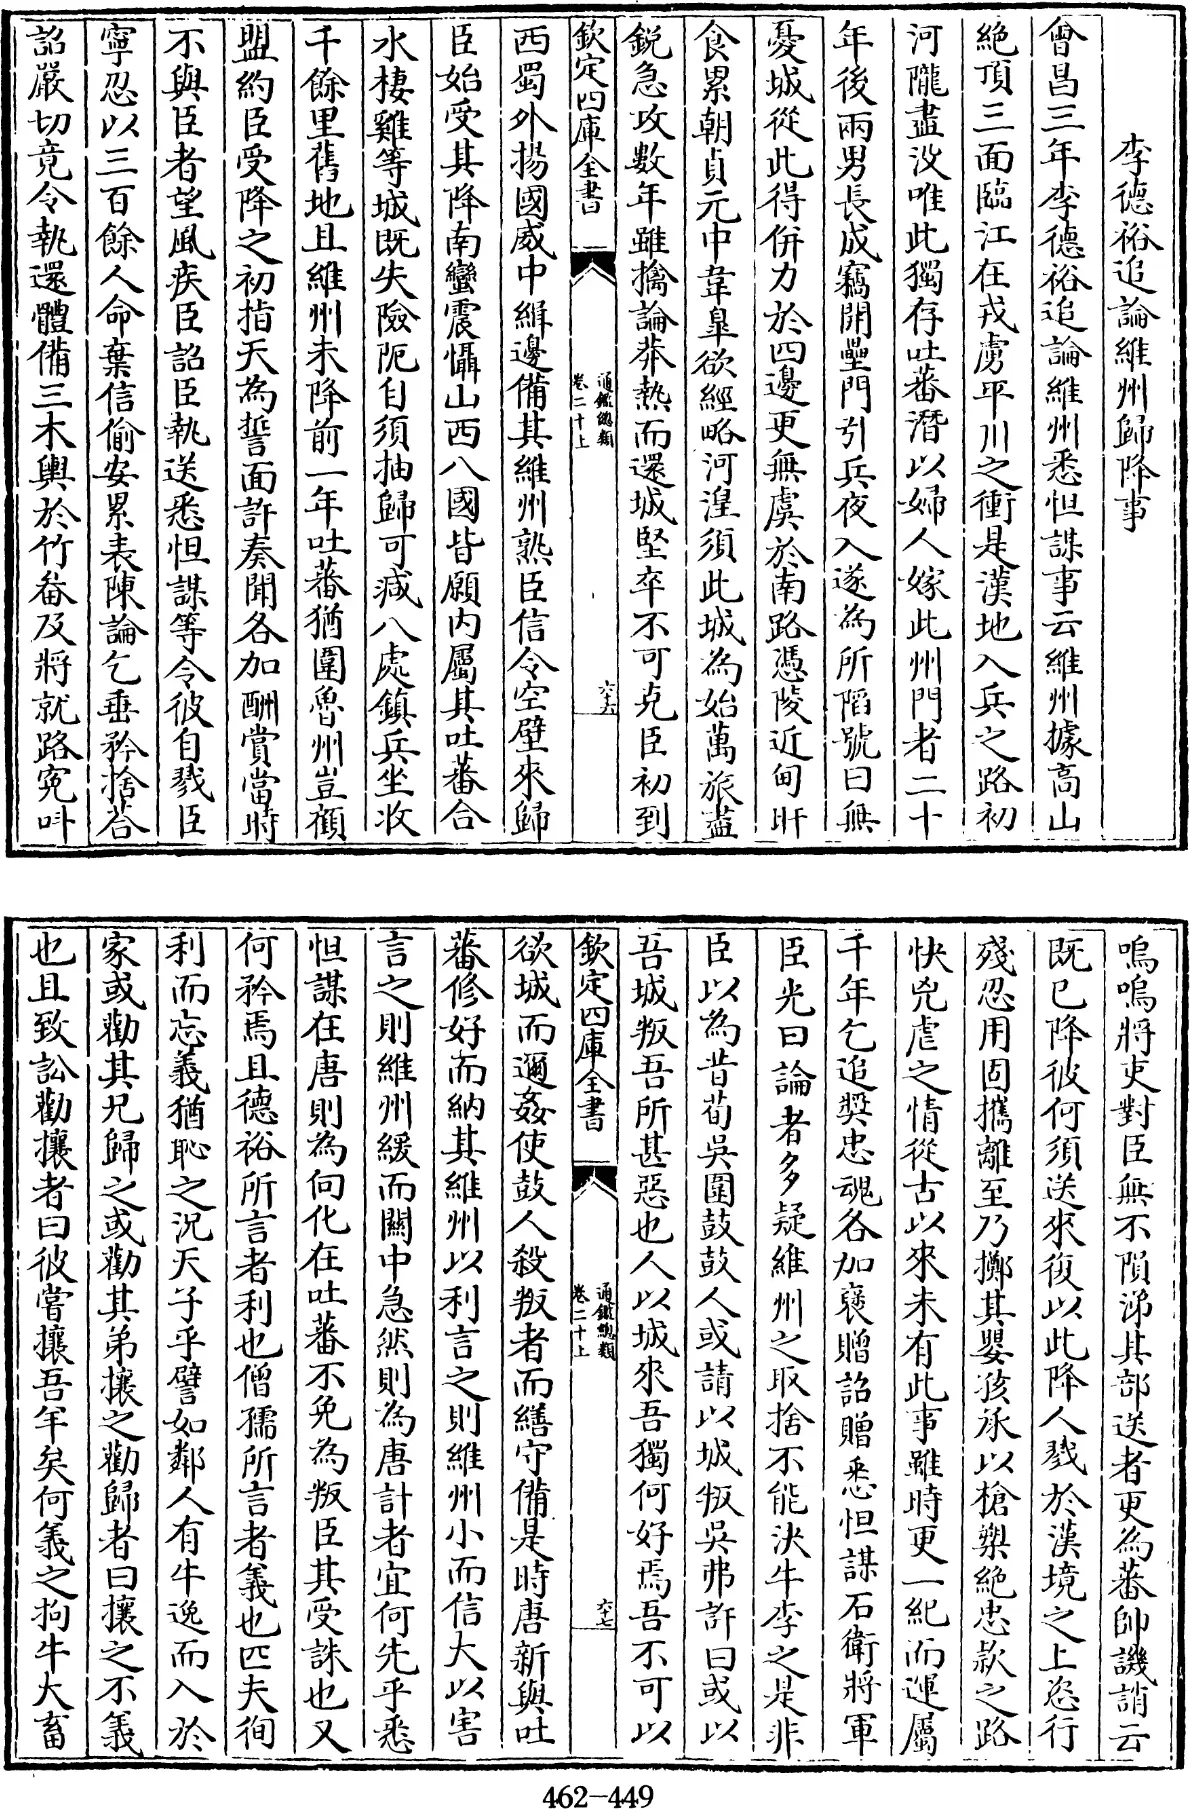 李德裕追論維州歸降事
會昌三年李德裕追論維州悉怛謀事云維州據高山
絶頂三面臨江在戎虜平川之衝是漢地入兵之路初
河隴盡没唯此獨存吐蕃潛以婦人嫁此州門者二十
年後兩男長成竊開壘門引兵夜入遂為所陷號曰無
憂城從此得併力於四邊更無虞於南路憑陵近甸旰
食累朝貞元中韋臯欲經略河湟須此城為始萬旅盡
鋭急攻數年雖擒論莽熱而還城堅卒不可克臣初到
欽定四庫全書
通鑑總類
卷二十上
六十六
西蜀外揚國威中緝邊備其維州熟臣信令空壁來歸
臣始受其降南蠻震懾山西八國皆願内屬其吐蕃合
水棲雞等城既失險阨自須抽歸可減八處鎮兵坐收
千餘里舊地且維州未降前一年吐蕃猶圍魯州豈顧
盟約臣受降之初指天為誓面許奏聞各加酬賞當時
不與臣者望風疾臣詔臣執送悉怛謀等令彼自戮臣
寧忍以三百餘人命棄信偷安累表陳論乞垂矜捨荅
詔嚴切竟令執還體備三木輿於竹畚及將就路寃叫
嗚嗚將吏對臣無不隕涕其部送者更為蕃帥譏誚云
既已降彼何須送來復以此降人戮於漢境之上恣行
殘忍用固攜離至乃擲其嬰孩承以槍槊絶忠款之路
快兇虐之情從古以來未有此事雖時更一紀而運屬
千年乞追奬忠魂各加襃贈詔贈悉怛謀右衛將軍
臣光曰論者多疑維州之取捨不能決牛李之是非
臣以為昔荀吳圍鼓鼓人或請以城叛吳弗許曰或以
吾城叛吾所甚惡也人以城來吾獨何好焉吾不可以
欽定四庫全書
通鑑總類
卷二十上
六十七
欲城而邇姦使鼓人殺叛者而繕守備是時唐新與吐
蕃修好而納其維州以利言之則維州小而信大以害
言之則維州緩而關中急然則為唐計者宜何先乎悉
怛謀在唐則為向化在吐蕃不免為叛臣其受誅也又
何矜焉且德裕所言者利也僧孺所言者義也匹夫徇
利而忘義猶恥之況天子乎譬如鄰人有牛逸而入於
家或勸其兄歸之或勸其弟攘之勸歸者曰攘之不義
也且致訟勸攘者曰彼嘗攘吾羊矣何義之拘牛大畜
462-449